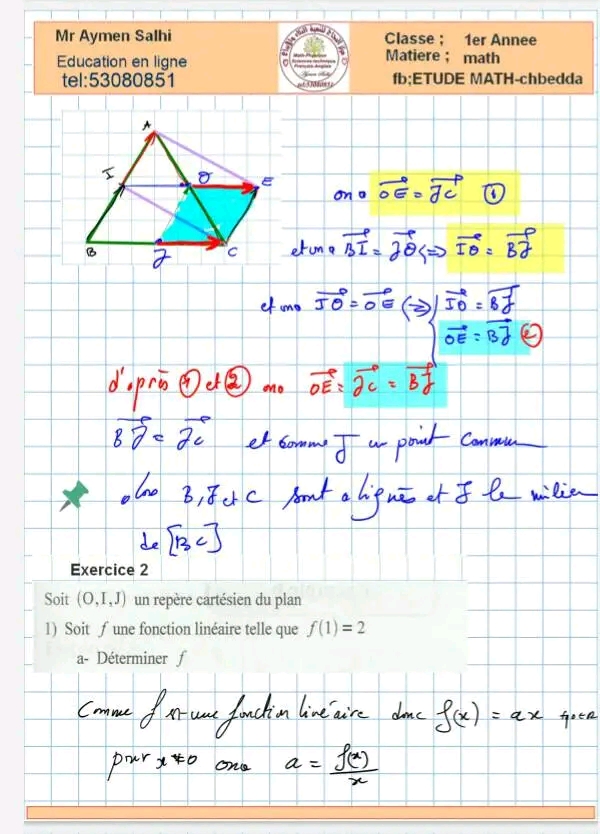 Mr Aymen Salhi
Education en ligne
tel:53080851
Classe ; 1er Annee
Matiere ; math
fb;ETUDE MATH-chbedda
A
I O E
B J C
on a OE = JC ①
et on a BI = JO ⇔ IO = BJ
et on a IO = OE ⇔ IO = BJ
OE = BJ ②
d'après ① et ② on a OE = JC = BJ
BJ = JC et comme J un point commun
alors B, J et C sont alignés et J le milieu
de [BC]
Exercice 2
Soit (O,I,J) un repère cartésien du plan
1) Soit f une fonction linéaire telle que f(1) = 2
a- Déterminer f
Comme f est une fonction linéaire donc f(x) = ax
pour x ≠ 0 on a a = f(x)/x